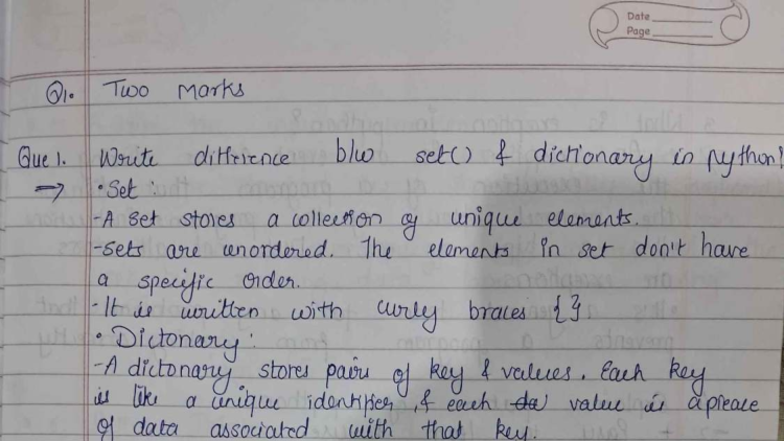 Date
Page
Q1. Two Marks
Que 1. Write diffirence b/w set() & dictionary in python?
→ • Set :
- A set stores a collection of unique elements.
- sets are unordered. The elements in set don't have
a specific order.
- It is written with curly braces { }
• Dictonary :
- A dictonary stores pairs of key & values. Each key
is like a unique identifier, & each da value is a pieace
of data associated with that key.